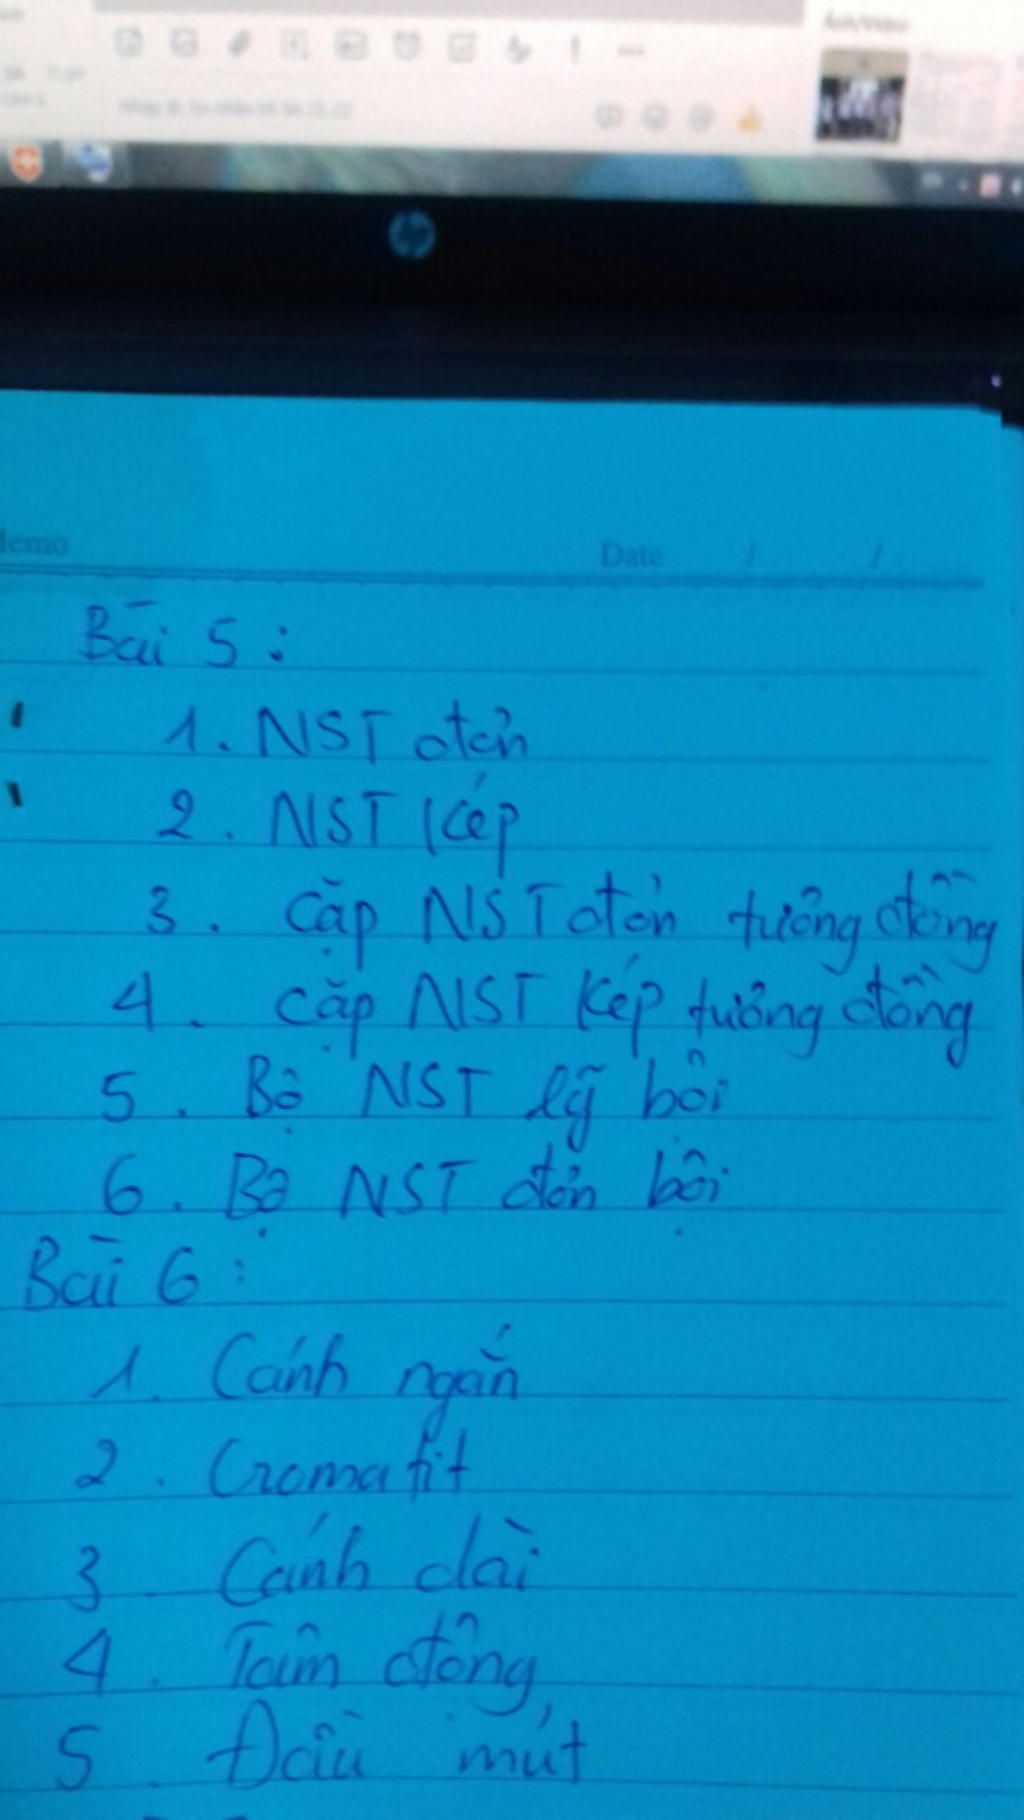 Ảnh/Video
hp
Memo Date / /
Bài 5 :
1. NST đơn
2. NST kép
3. cặp NST đơn tương đồng
4. cặp NST kép tương đồng
5. Bộ NST lưỡng bội
6. Bộ NST đơn bội
Bài 6 :
1. Cánh ngắn
2. Cromatit
3. Cánh dài
4. Tâm động
5. Đầu mút